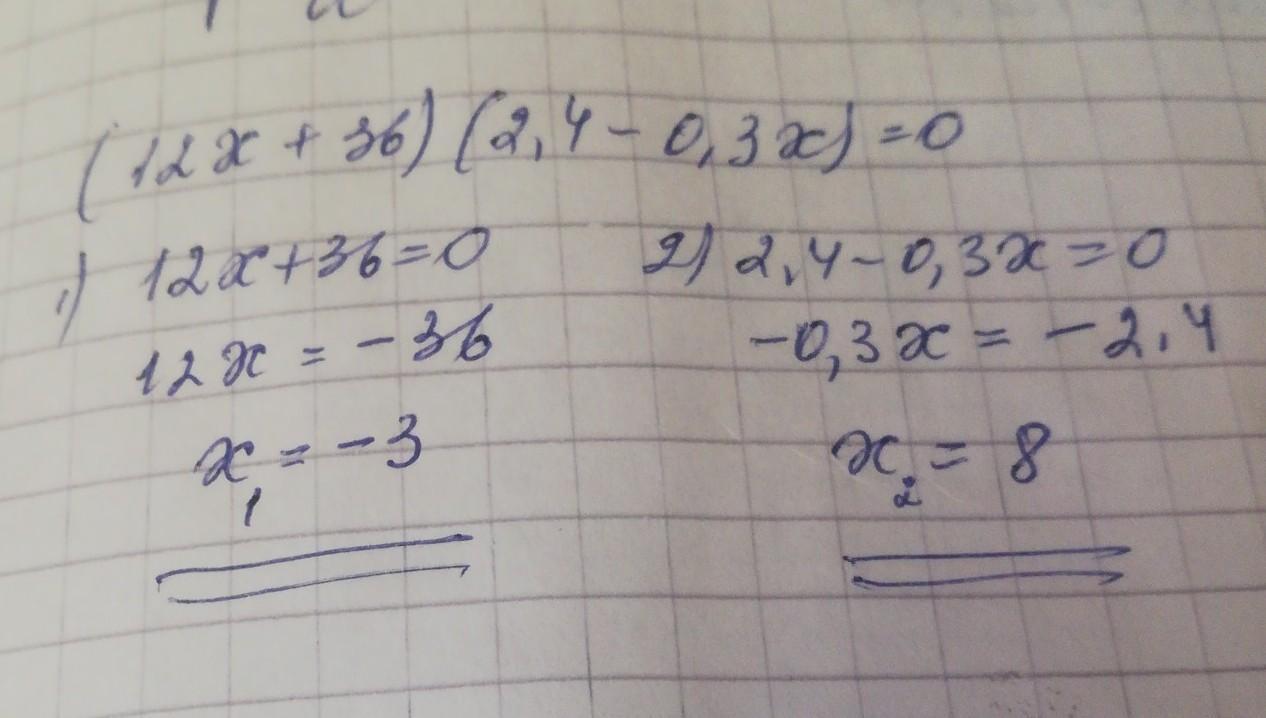 (12x + 36) (2,4 - 0,3x) = 0
1) 12x + 36 = 0
12x = -36
x₁ = -3
2) 2,4 - 0,3x = 0
-0,3x = -2,4
x₂ = 8